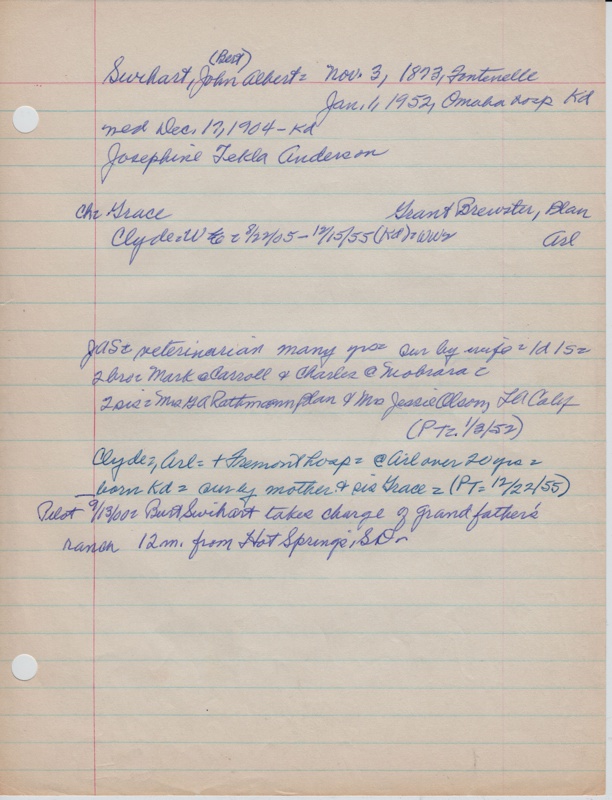 (Bert)
Swihart, John Albert = Nov. 3, 1873, Fontenelle
Jan. 1, 1952, Omaha hosp Kd
med Dec. 17, 1904 - Kd
Josephine Tekla Anderson
Ch = Grace Grant Brewster, Blair
Clyde = W = 8/22/05 - 12/15/55 (Kd) = WW2 Arl
JAS = veterinarian many yrs = sur by wife = 1d 1s =
2 bro = Mark @ Carroll & Charles @ Niobrara =
2 sis = Mrs GA Rathmann, Blair & Mrs Jessie Olson, LA Calif
(PT = 1/3/52)
Clyde =, Arl = + Fremont hosp = @ Arl over 20 yrs =
born Kd = sur by mother & sis Grace = (PT = 12/22/55)
Pilot 9/13/00 = Burt Swihart takes charge of grandfather's
ranch 12 m. from Hot Springs, SD